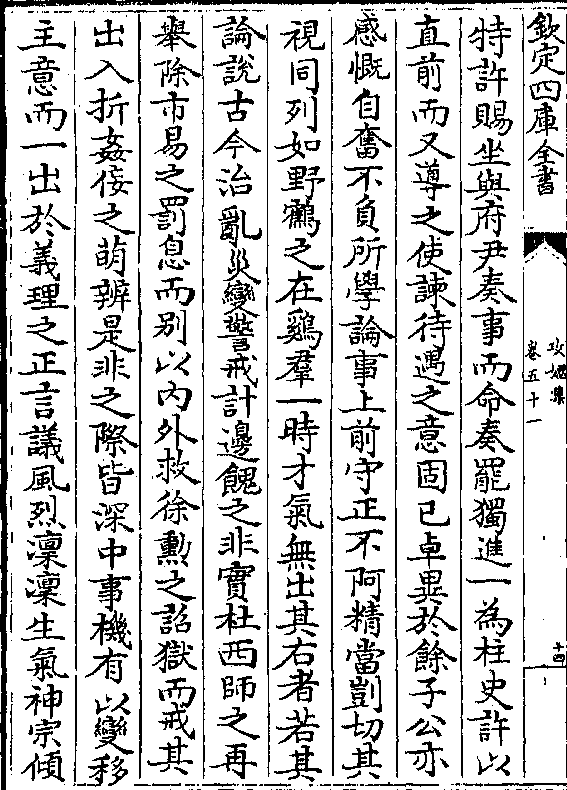 欽定四庫全書
攻媿集
卷五十一
十四
特許賜坐與府尹奏事而命奏罷獨進一為柱史許以
直前而又導之使諫待遇之意固已卓異於餘子公亦
感慨自奮不負所學論事上前守正不阿精當剴切其
視同列如野鶴之在鷄羣一時才氣無出其右者若其
論說古今治亂災變警戒計邊餽之非實杜西師之再
舉除市易之罰息而别以内外救徐勲之詔獄而戒其
出入折姦佞之萌辨是非之際皆深中事機有以變移
主意而一出於義理之正言議風烈凛凛生氣神宗傾